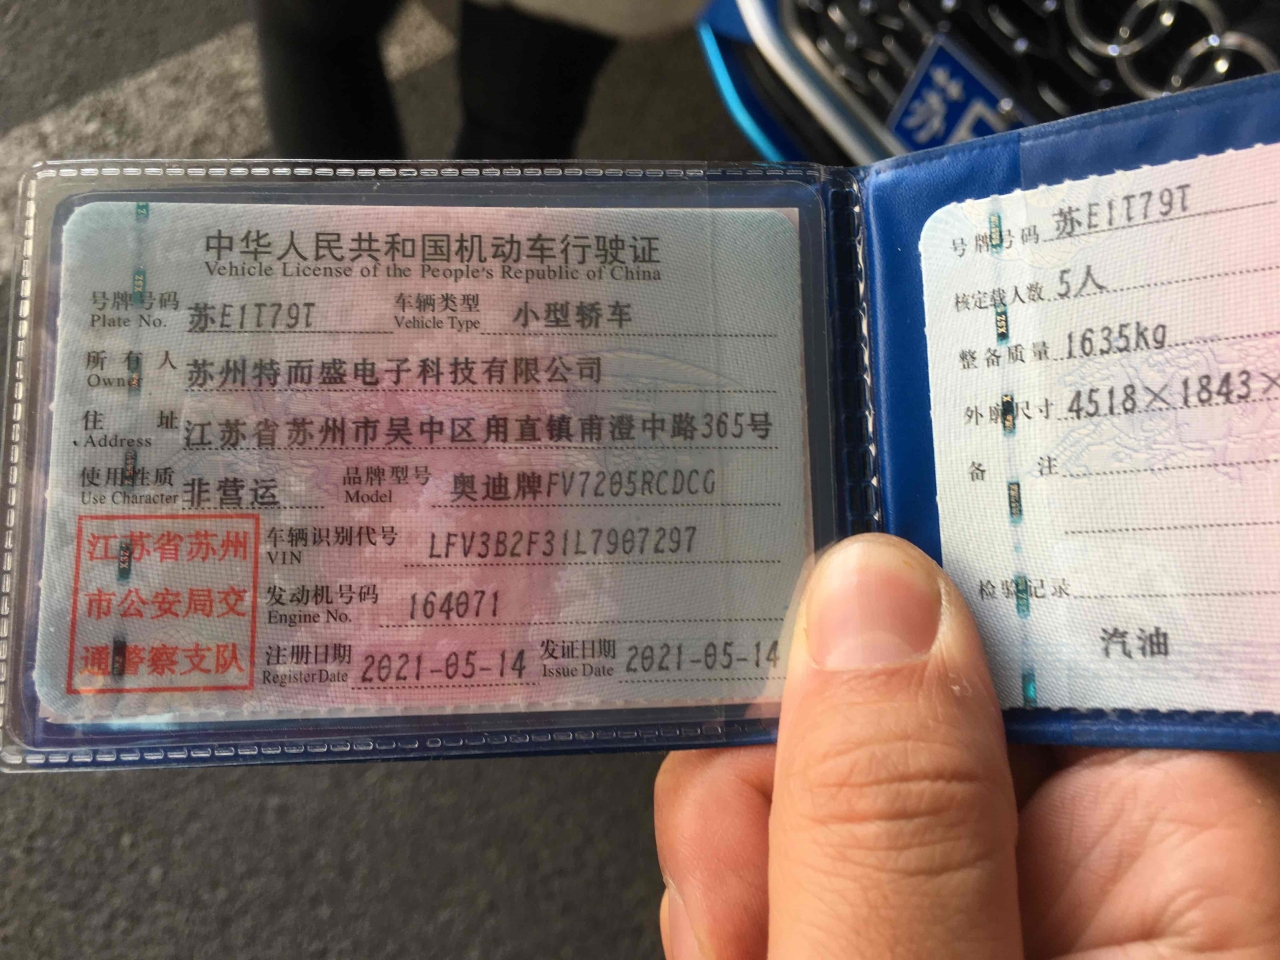 中华人民共和国机动车行驶证
Vehicle License of the People's Republic of China
号牌号码 苏E1T79T 车辆类型 小型轿车
Plate No. Vehicle Type
所有人 苏州特而盛电子科技有限公司
Owner
住址 江苏省苏州市吴中区甪直镇甫澄中路365号
Address
使用性质 非营运 品牌型号 奥迪牌FV7205RCDCG
Use Character Model
江苏省苏州
市公安局交
通警察支队
车辆识别代号 LFV3B2F31L7907297
VIN
发动机号码 164071
Engine No.
注册日期 2021-05-14 发证日期 2021-05-14
Register Date Issue Date
号牌号码 苏E1T79T
核定载人数 5人
整备质量 1635kg
外廓尺寸 4518×1843×
备注
检验记录
汽油
苏E